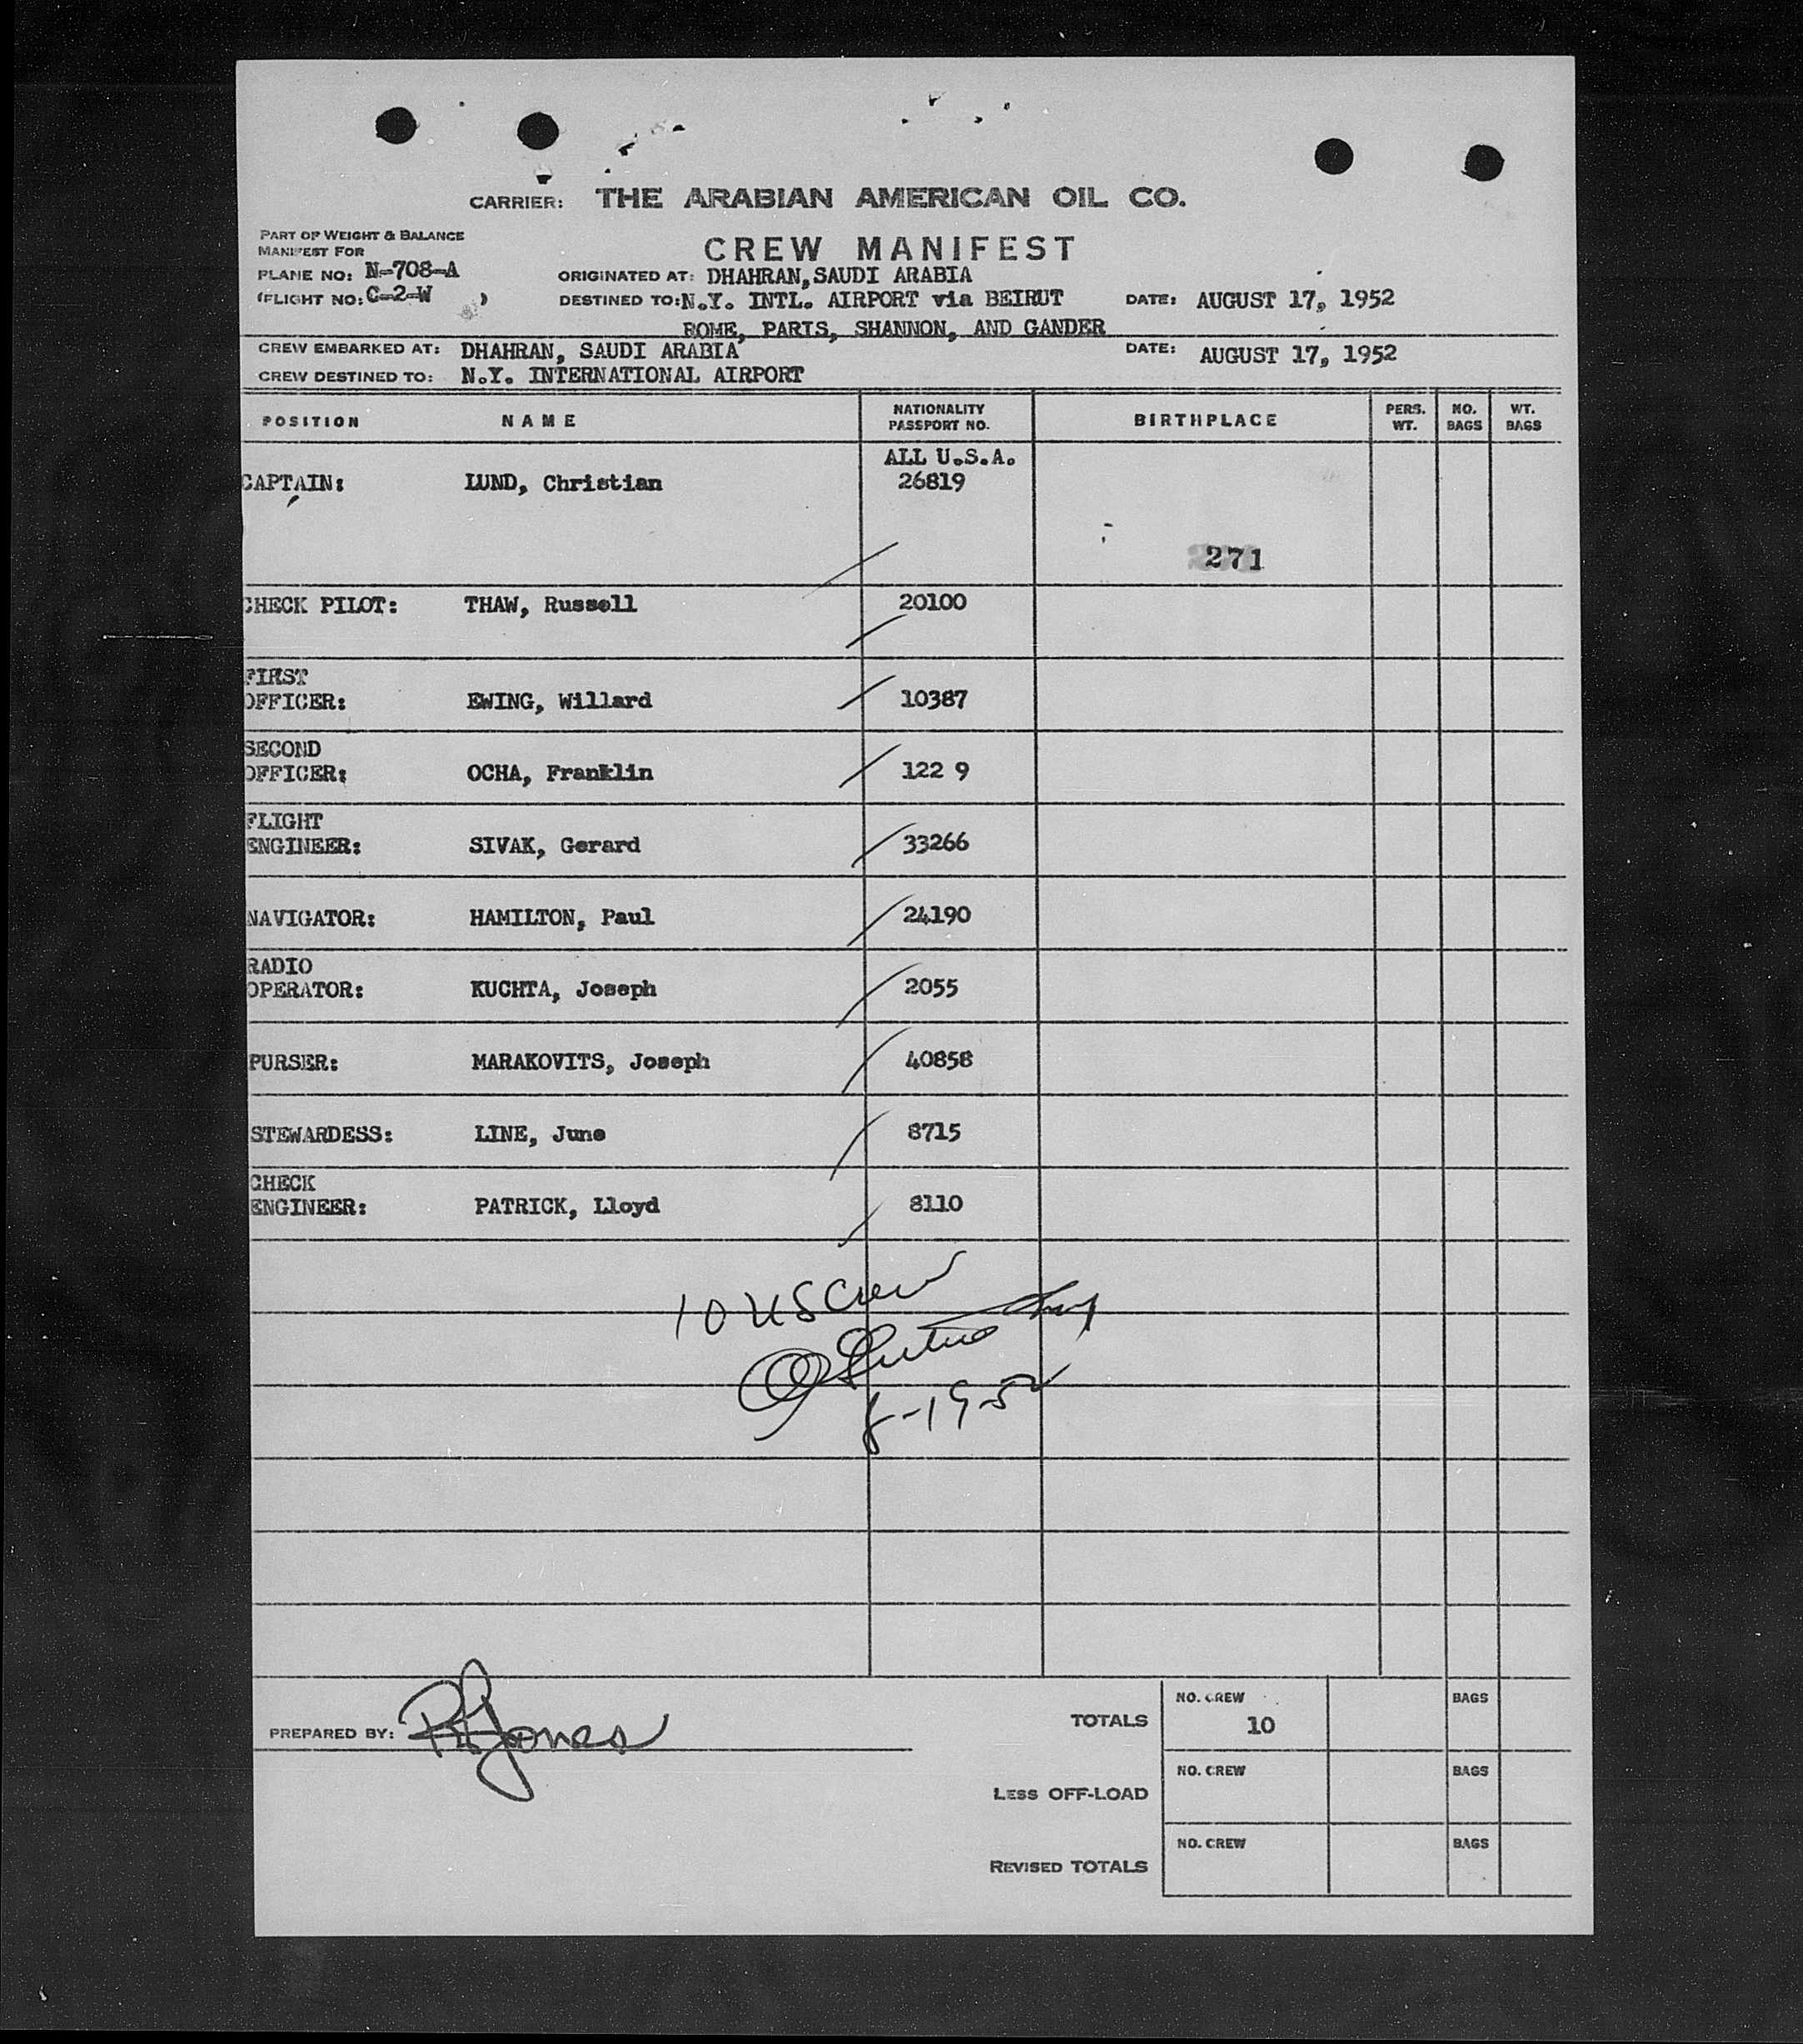 CARRIER: THE ARABIAN AMERICAN OIL CO.
PART OF WEIGHT & BALANCE
MANIFEST FOR
CREW MANIFEST
PLANE NO: N-708-A
ORIGINATED AT: DHAHRAN, SAUDI ARABIA
(FLIGHT NO: C-2-W )
DESTINED TO: N.Y. INTL. AIRPORT via BEIRUT DATE: AUGUST 17, 1952
ROME, PARIS, SHANNON, AND GANDER
CREW EMBARKED AT: DHAHRAN, SAUDI ARABIA DATE: AUGUST 17, 1952
CREW DESTINED TO: N.Y. INTERNATIONAL AIRPORT
POSITION NAME NATIONALITY PASSPORT NO. BIRTHPLACE PERS. WT. NO. BAGS WT. BAGS
ALL U.S.A.
CAPTAIN: LUND, Christian 26819
271
CHECK PILOT: THAW, Russell 20100
FIRST
OFFICER: EWING, Willard 10387
SECOND
OFFICER: OCHA, Franklin 122 9
FLIGHT
ENGINEER: SIVAK, Gerard 33266
NAVIGATOR: HAMILTON, Paul 24190
RADIO
OPERATOR: KUCHTA, Joseph 2055
PURSER: MARAKOVITS, Joseph 40858
STEWARDESS: LINE, June 8715
CHECK
ENGINEER: PATRICK, Lloyd 8110
10 US Crew
8-19-52
PREPARED BY: R Jones
TOTALS NO. CREW 10 BAGS
LESS OFF-LOAD NO. CREW BAGS
REVISED TOTALS NO. CREW BAGS